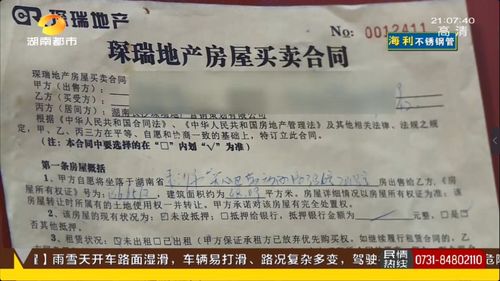 琛瑞地产
湖南都市
No: 0012411
21:07:40
高清
海利不锈钢管
琛瑞地产房屋买卖合同
琛瑞地产房屋买卖合同
甲方(出售方):
乙方(买受方):
丙方(居间方):湖南
根据《中华人民共和国合同法》、《中华人民共和国房地产管理法》及其他相关法律、法规之规
定,甲、乙、丙三方在平等、自愿和协商一致的基础上,特订立此合同。
(注:本合同要选择的在“□”内划“√”为准)
第一条房屋概括
1、甲方自愿将坐落于湖南省 房出售给乙方,《房
屋所有权证》号为: 建筑面积约为 平方米。房屋详细情况以房屋所有权
房屋转让时所属有的土地使用权一并转让。甲方承诺对该房屋有完全处置权。
2、该房屋的现有状况为:☑未设抵押;□抵押给银行,抵押银行金额为 元整。□是
否其他抵押。
3、租赁状况:☑未出租□已出租(甲方保证承租方已放弃优先购买权。如继续履行租赁合同的,
】雨雪天开车路面湿滑,车辆易打滑、路况复杂多变,驾驶
民情热线
0731-84802110